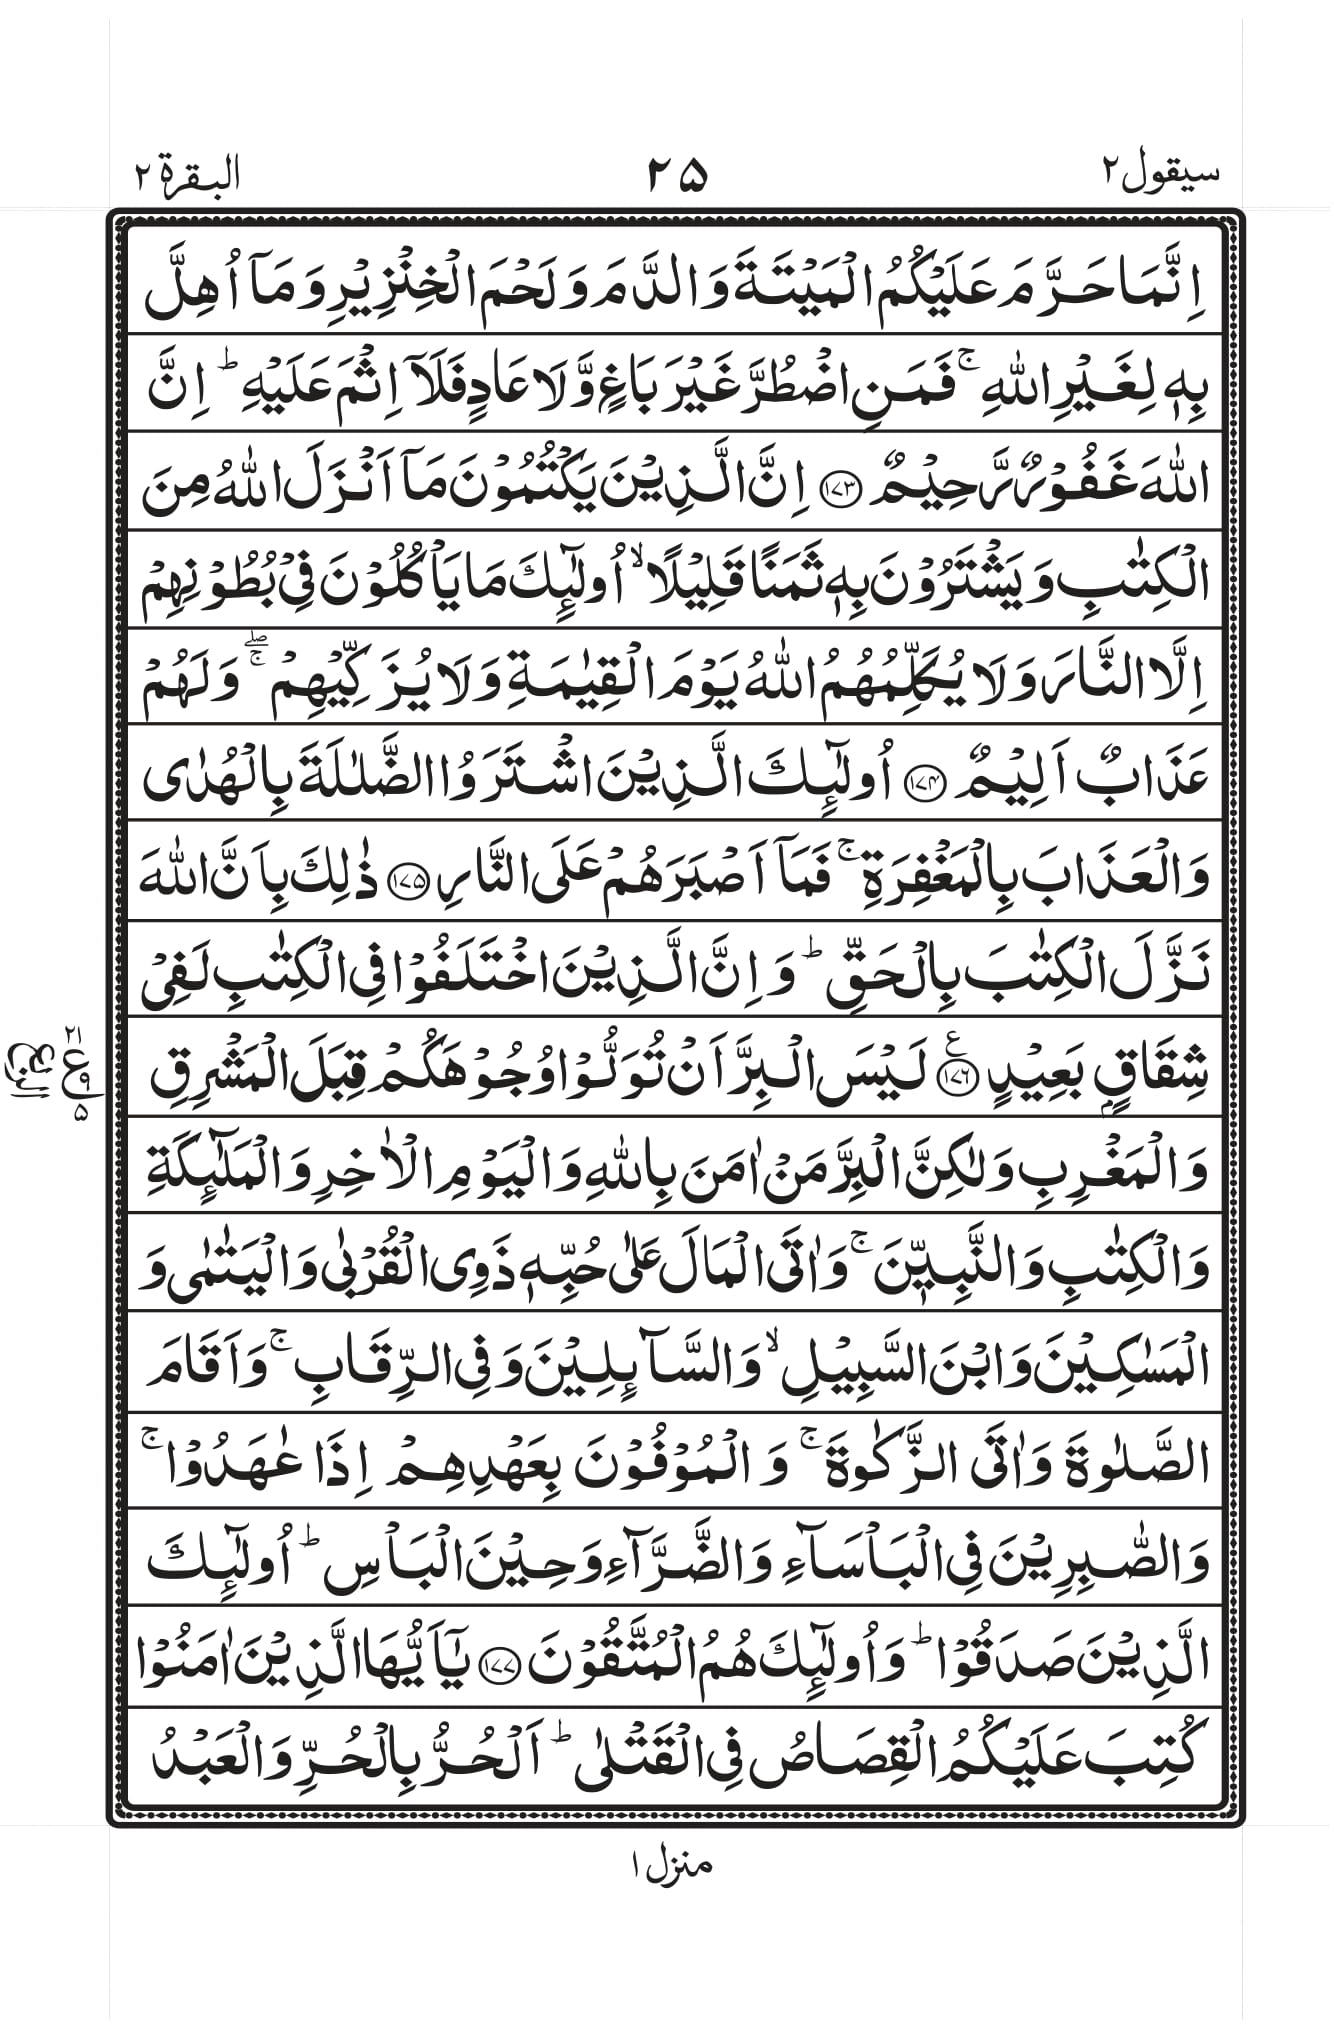 سيقول ٢
٢٥
البقرة ٢
اِنَّمَا حَرَّمَ عَلَيْكُمُ الْمَيْتَةَ وَالدَّمَ وَلَحْمَ الْخِنْزِيْرِ وَمَاۤ اُهِلَّ
بِهٖ لِغَيْرِ اللّٰهِ ۚ فَمَنِ اضْطُرَّ غَيْرَ بَاغٍ وَّلَا عَادٍ فَلَاۤ اِثْمَ عَلَيْهِ ؕ اِنَّ
اللّٰهَ غَفُوْرٌ رَّحِيْمٌ ﴿۱۷۳﴾ اِنَّ الَّذِيْنَ يَكْتُمُوْنَ مَاۤ اَنْزَلَ اللّٰهُ مِنَ
الْكِتٰبِ وَيَشْتَرُوْنَ بِهٖ ثَمَنًا قَلِيْلًا ۙ اُولٰٓئِكَ مَا يَاْكُلُوْنَ فِيْ بُطُوْنِهِمْ
اِلَّا النَّارَ وَلَا يُكَلِّمُهُمُ اللّٰهُ يَوْمَ الْقِيٰمَةِ وَلَا يُزَكِّيْهِمْ ۖۚ وَلَهُمْ
عَذَابٌ اَلِيْمٌ ﴿۱۷۴﴾ اُولٰٓئِكَ الَّذِيْنَ اشْتَرَوُا الضَّلٰلَةَ بِالْهُدٰى
وَالْعَذَابَ بِالْمَغْفِرَةِ ۚ فَمَاۤ اَصْبَرَهُمْ عَلَى النَّارِ ﴿۱۷۵﴾ ذٰلِكَ بِاَنَّ اللّٰهَ
نَزَّلَ الْكِتٰبَ بِالْحَقِّ ؕ وَاِنَّ الَّذِيْنَ اخْتَلَفُوْا فِى الْكِتٰبِ لَفِيْ
شِقَاقٍۭ بَعِيْدٍ ﴿۱۷۶﴾ ع لَيْسَ الْبِرَّ اَنْ تُوَلُّوْا وُجُوْهَكُمْ قِبَلَ الْمَشْرِقِ
وَالْمَغْرِبِ وَلٰكِنَّ الْبِرَّ مَنْ اٰمَنَ بِاللّٰهِ وَالْيَوْمِ الْاٰخِرِ وَالْمَلٰٓئِكَةِ
وَالْكِتٰبِ وَالنَّبِيّٖنَ ۚ وَاٰتَى الْمَالَ عَلٰى حُبِّهٖ ذَوِى الْقُرْبٰى وَالْيَتٰمٰى وَ
الْمَسٰكِيْنَ وَابْنَ السَّبِيْلِ ۙ وَالسَّآئِلِيْنَ وَفِى الرِّقَابِ ۚ وَاَقَامَ
الصَّلٰوةَ وَاٰتَى الزَّكٰوةَ ۚ وَالْمُوْفُوْنَ بِعَهْدِهِمْ اِذَا عٰهَدُوْا ۚ
وَالصّٰبِرِيْنَ فِى الْبَاْسَآءِ وَالضَّرَّآءِ وَحِيْنَ الْبَاْسِ ؕ اُولٰٓئِكَ
الَّذِيْنَ صَدَقُوْا ؕ وَاُولٰٓئِكَ هُمُ الْمُتَّقُوْنَ ﴿۱۷۷﴾ يٰۤاَيُّهَا الَّذِيْنَ اٰمَنُوْا
كُتِبَ عَلَيْكُمُ الْقِصَاصُ فِى الْقَتْلٰى ؕ اَلْحُرُّ بِالْحُرِّ وَالْعَبْدُ
٢١
ع
٩
٥
منزل ١